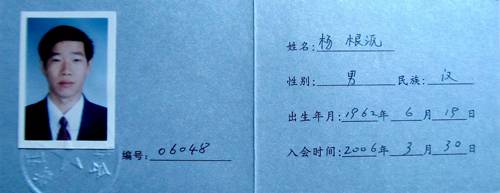 编号:06048
姓名:杨根汦
性别:男 民族:汉
出生年月:1962年6月19日
入会时间:2006年3月30日